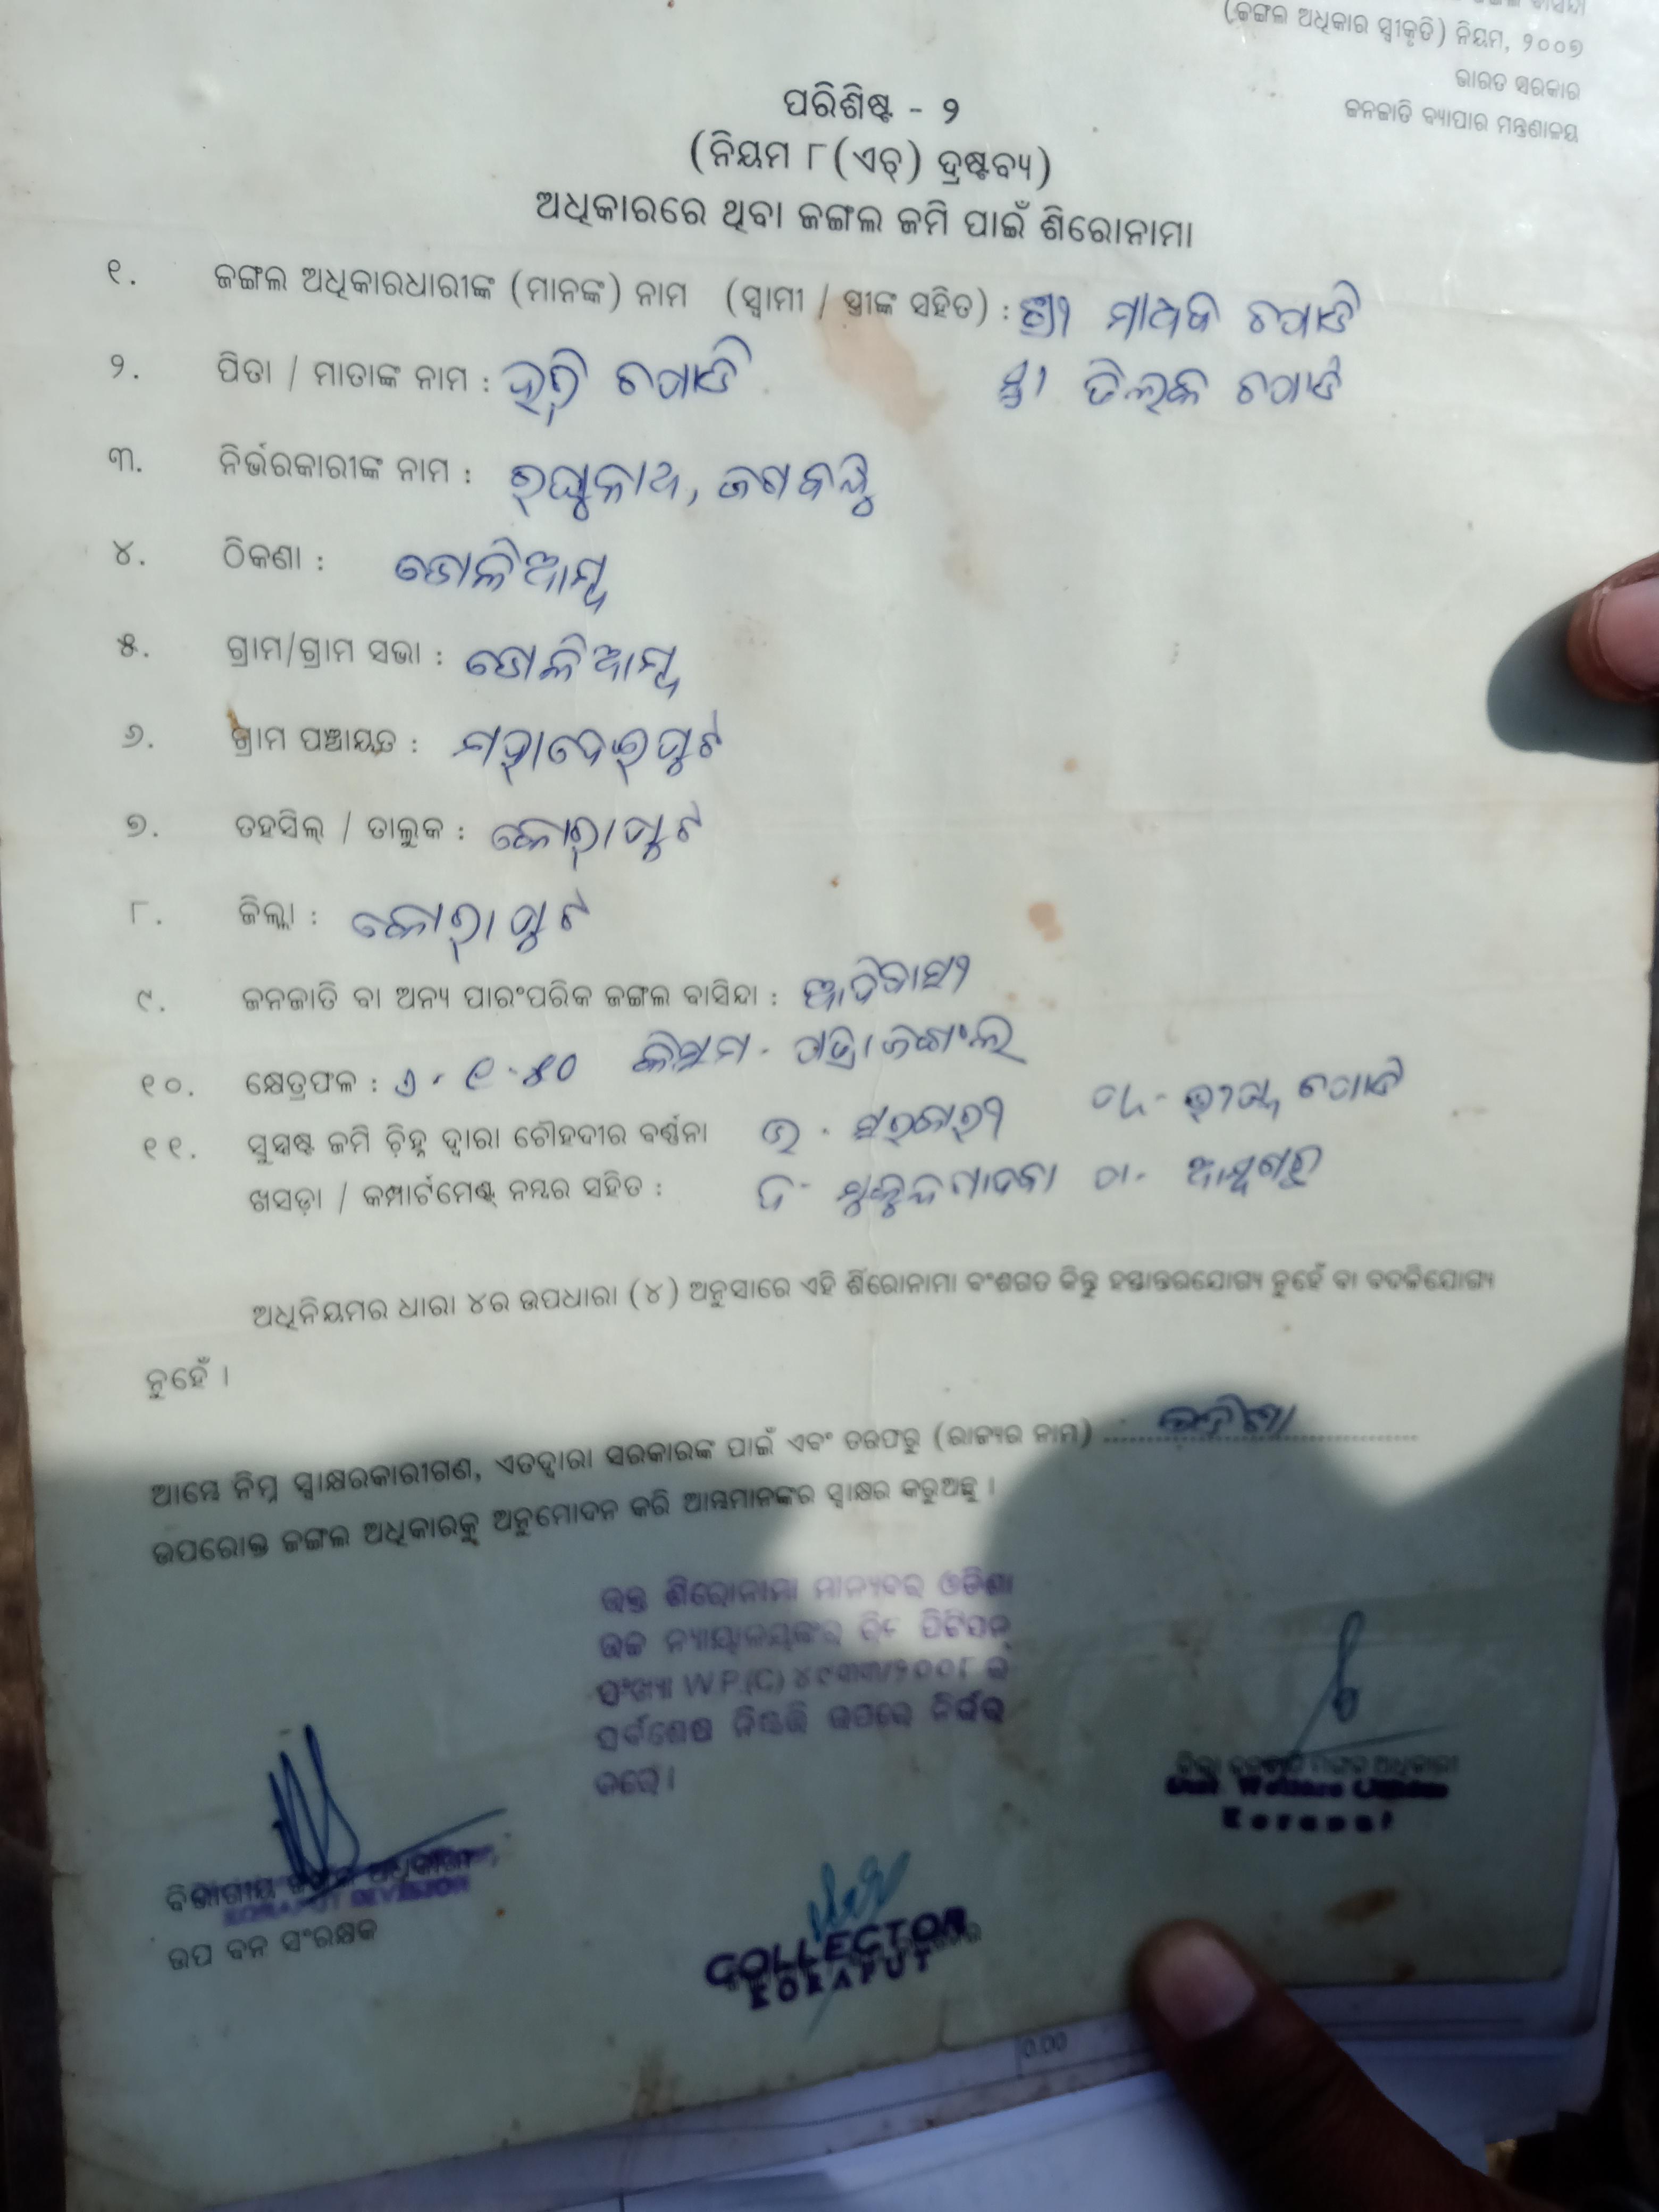 (ଜଙ୍ଗଲ ଅଧିକାର ସ୍ୱୀକୃତି) ନିୟମ, ୨୦୦୭
ଭାରତ ସରକାର
ଜନଜାତି ବ୍ୟାପାର ମନ୍ତ୍ରଣାଳୟ
ପରିଶିଷ୍ଟ - ୨
(ନିୟମ ୮(ଏଚ୍) ଦ୍ରଷ୍ଟବ୍ୟ)
ଅଧିକାରରେ ଥିବା ଜଙ୍ଗଲ ଜମି ପାଇଁ ଶିରୋନାମା
୧. ଜଙ୍ଗଲ ଅଧିକାରଧାରୀଙ୍କ (ମାନଙ୍କ) ନାମ (ସ୍ୱାମୀ / ସ୍ତ୍ରୀଙ୍କ ସହିତ) : ଶ୍ରୀ ମାଧବ
୨. ପିତା / ମାତାଙ୍କ ନାମ : ହରି
୩. ନିର୍ଭରକାରୀଙ୍କ ନାମ : ରଘୁନାଥ, ଜଗବନ୍ଧୁ
୪. ଠିକଣା : ଡୋଳିଆମ୍ବ
୫. ଗ୍ରାମ/ଗ୍ରାମ ସଭା : ଡୋଳିଆମ୍ବ
୬. ଗ୍ରାମ ପଞ୍ଚାୟତ : ମହାଦେଇପୁଟ
୭. ତହସିଲ୍ / ତାଲୁକ : କୋରାପୁଟ
୮. ଜିଲ୍ଲା : କୋରାପୁଟ
୯. ଜନଜାତି ବା ଅନ୍ୟ ପାରଂପରିକ ଜଙ୍ଗଲ ବାସିନ୍ଦା : ଆଦିବାସୀ
୧୦. କ୍ଷେତ୍ରଫଳ : କିସମ -
୧୧. ସୁସ୍ପଷ୍ଟ ଜମି ଚିହ୍ନ ଦ୍ୱାରା ଚୌହଦୀର ବର୍ଣ୍ଣନା ଉ - ସରକାରୀ
ଖସଡ଼ା / କମ୍ପାର୍ଟମେଣ୍ଟ ନମ୍ବର ସହିତ : ଦ -
ଅଧିନିୟମର ଧାରା ୪ର ଉପଧାରା (୪) ଅନୁସାରେ ଏହି ଶିରୋନାମା ବଂଶଗତ କିନ୍ତୁ ହସ୍ତାନ୍ତରଯୋଗ୍ୟ ନୁହେଁ ବା ବଦଳିଯୋଗ୍ୟ
ନୁହେଁ ।
ଆମ୍ଭେ ନିମ୍ନ ସ୍ୱାକ୍ଷରକାରୀଗଣ, ଏତଦ୍ୱାରା ସରକାରଙ୍କ ପାଇଁ ଏବଂ ତରଫରୁ (ରାଜ୍ୟର ନାମ) ......
ଉପରୋକ୍ତ ଜଙ୍ଗଲ ଅଧିକାରକୁ ଅନୁମୋଦନ କରି ଆମ୍ଭମାନଙ୍କର ସ୍ୱାକ୍ଷର କରୁଅଛୁ ।
ଉକ୍ତ ଶିରୋନାମା ମାନ୍ୟବର ଓଡିଶା
ଉଚ୍ଚ ନ୍ୟାୟାଳୟଙ୍କର ରିଟ ପିଟିସନ୍
ସଂଖ୍ୟା W.P.(C) ୪୯୩୩/୨୦୦୮ ର
ସର୍ବଶେଷ ନିଷ୍ପତ୍ତି ଉପରେ ନିର୍ଭର
କରେ ।
ଜିଲ୍ଲା ଜନଜାତି ମଙ୍ଗଳ ଅଧିକାରୀ
Dist. Welfare Officer
Koraput
ବିଭାଗୀୟ ଅଧିକାରୀ
KORAPUT DIVISION
ଉପ ବନ ସଂରକ୍ଷକ
COLLECTOR
KORAPUT
0.00